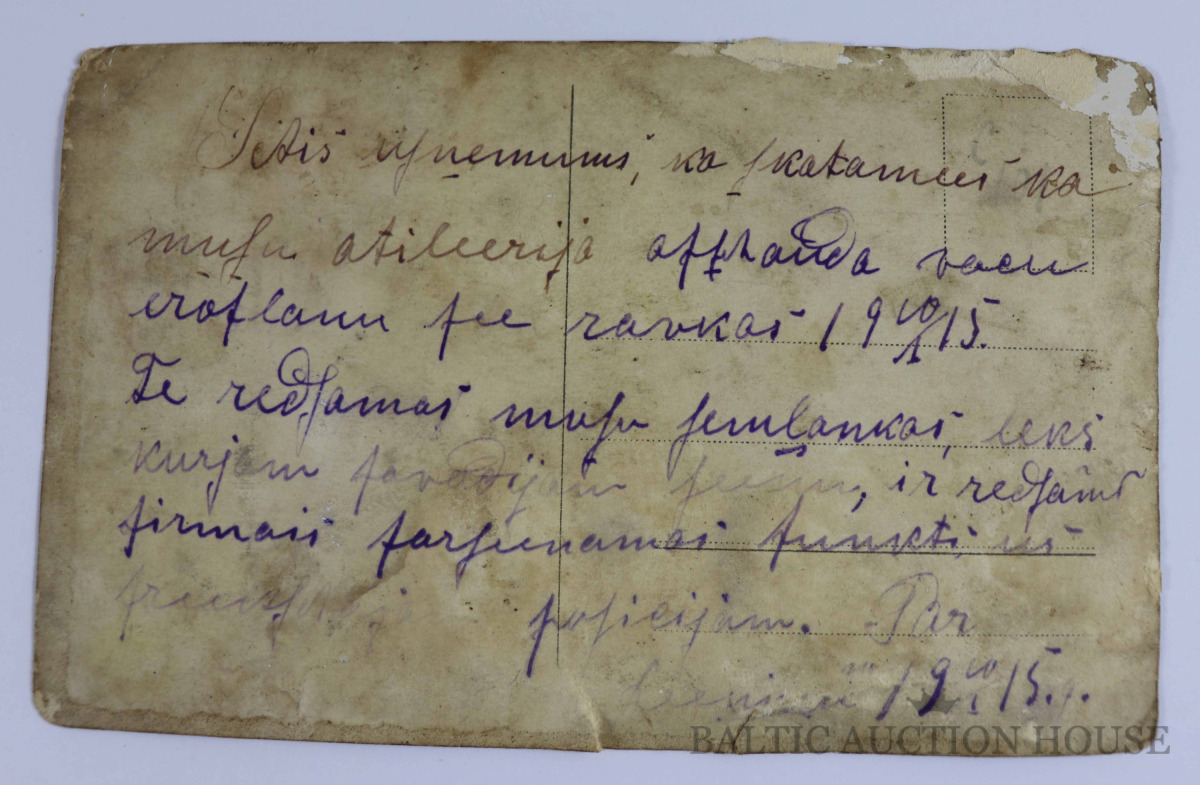 Šitis usņemums, ka skatamees ka
musu atileerija apschauda vacu
eroplanu pee ravkas 19 10/1 15.
Te redsamas musu semļankas, leks
kurjam pavadijam seemu, ir redsams
pirmais parseenamas punkts us
posicijam. Par
19 10/1 15.
BALTIC AUCTION HOUSE